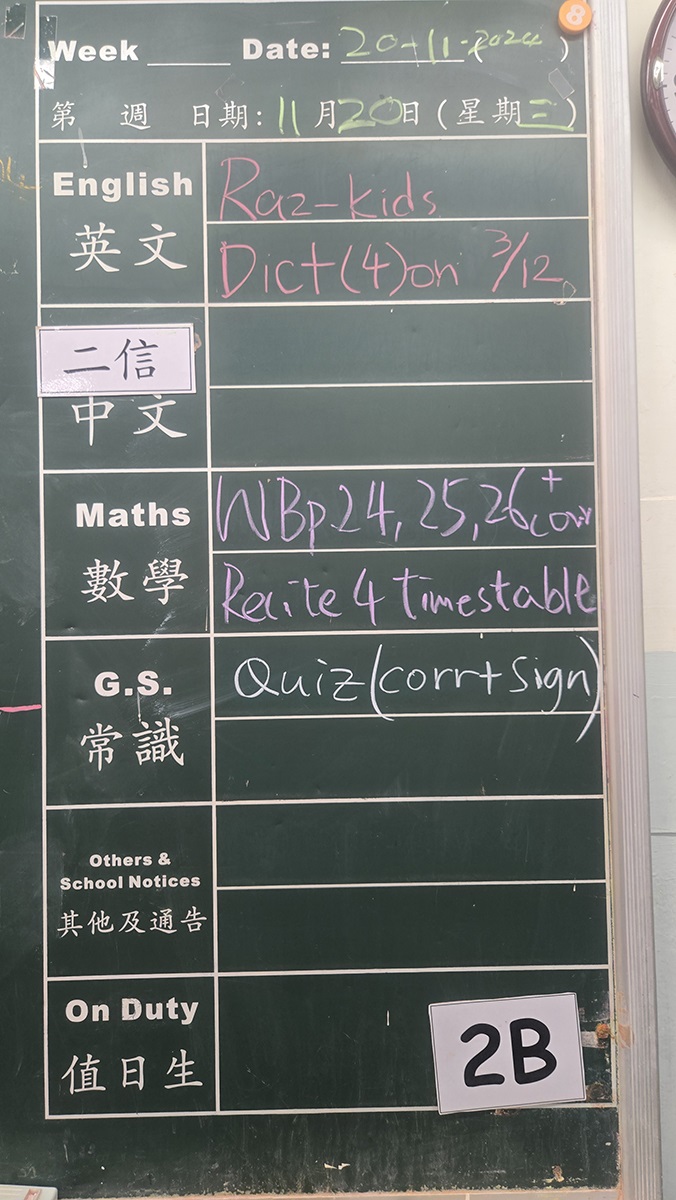 8
Week ____ Date: 20-11-2024 ( )
第 週 日期: 11月20日 (星期三)
English
Raz-kids
英文
Dict(4)on 3/12
二信
中文
Maths
WBp24,25,26+corr
數學
Recite 4 timestable
G.S.
Quiz(corr+sign)
常識
Others &
School Notices
其他及通告
On Duty
值日生
2B